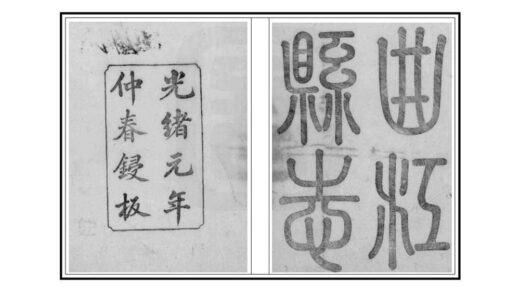 曲江
縣志
光緒元年
仲春鋟板